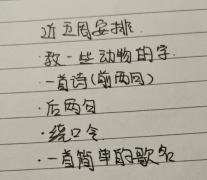 近五周安排
·教一些动物的字.
·一首诗(前两句)
·后两句
·绕口令
·一首简单的歌名